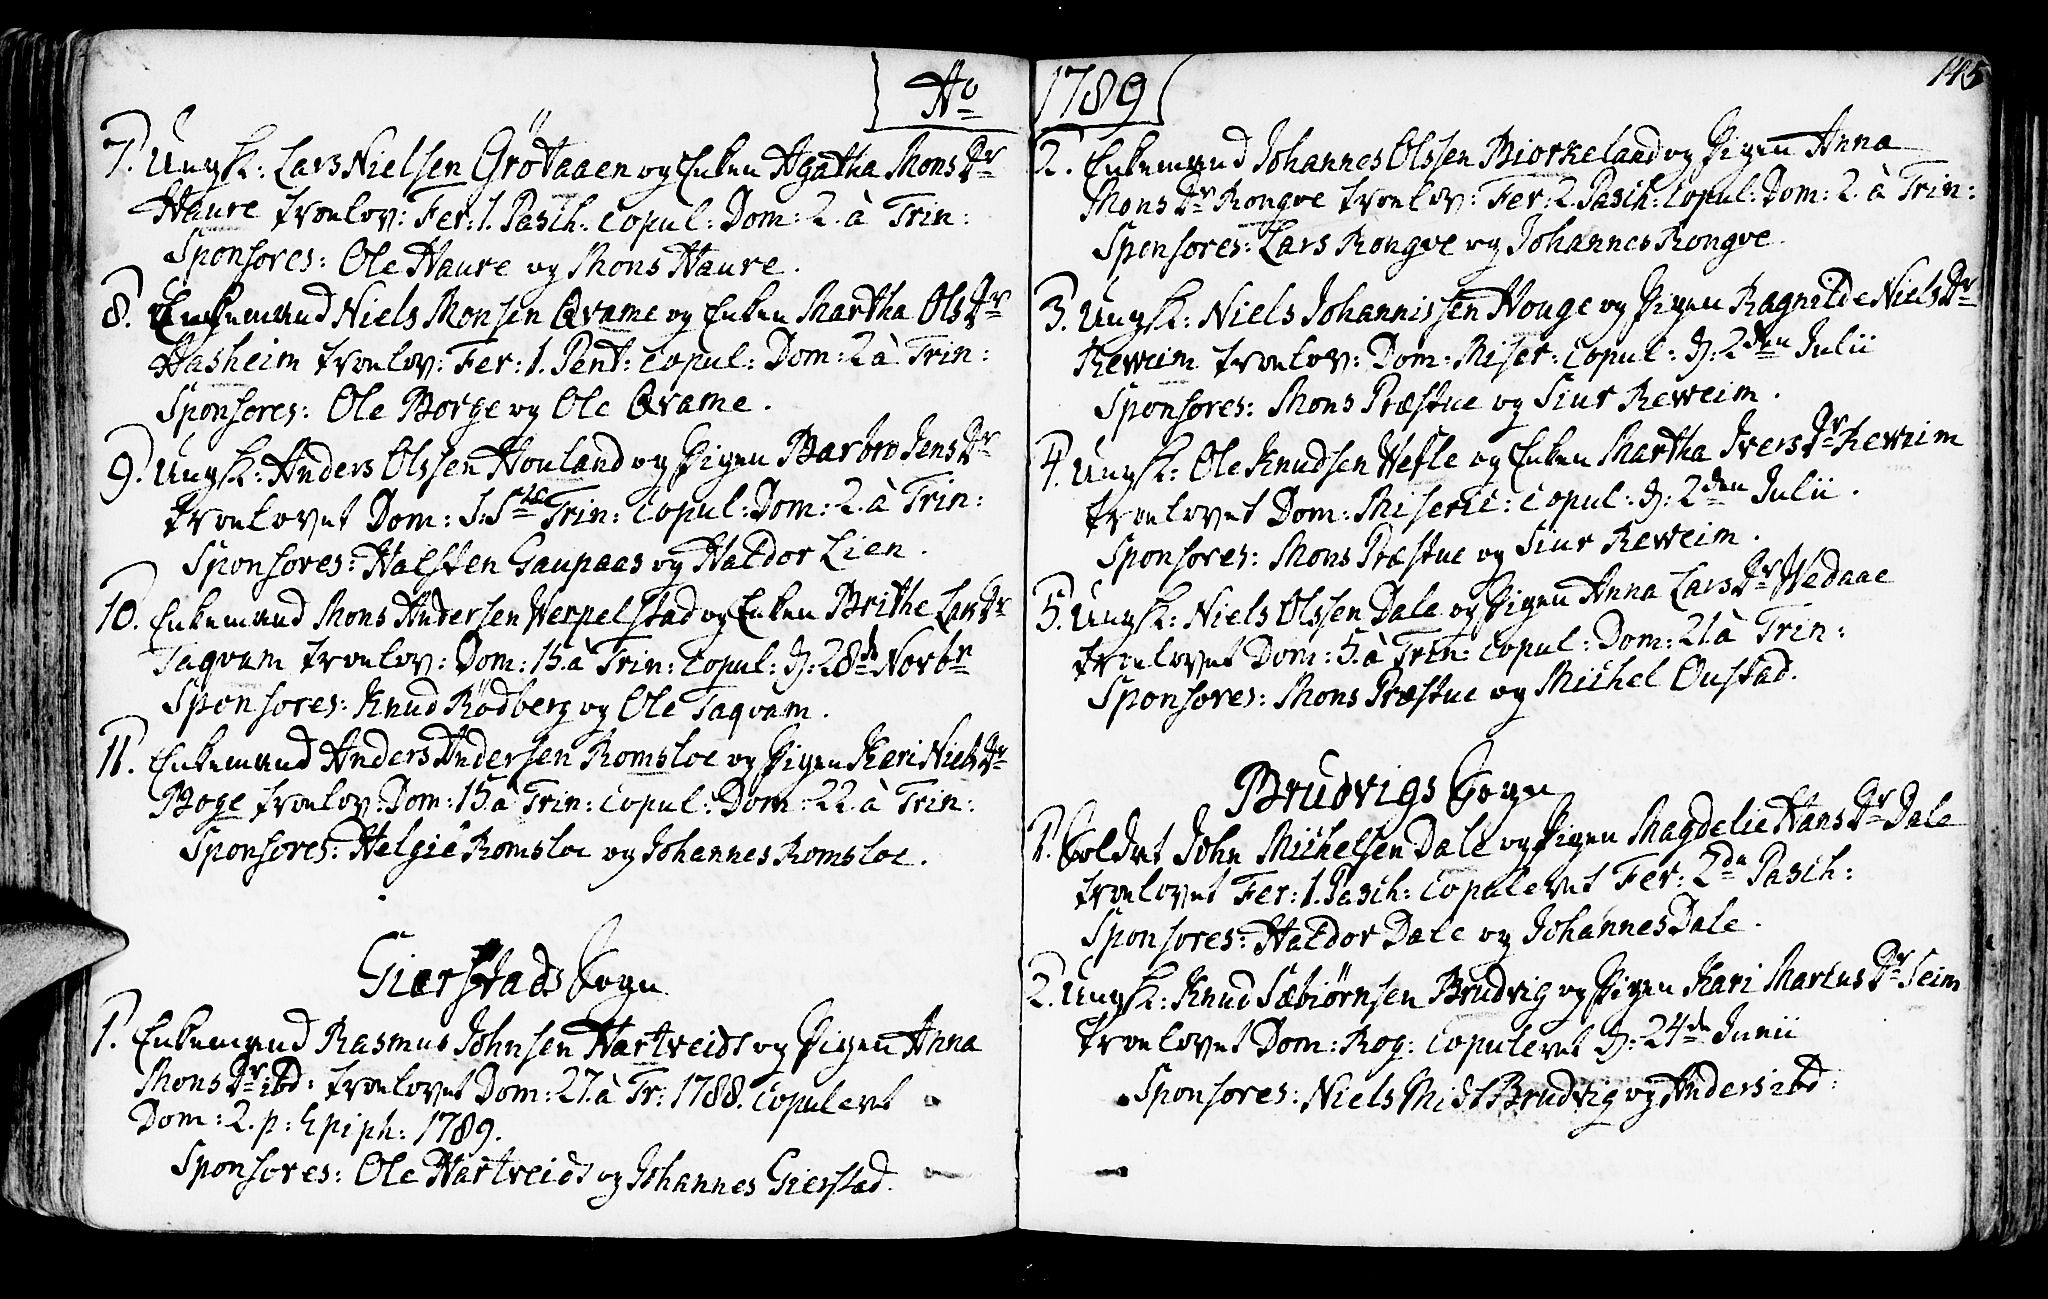 Ao
7. UngK: Lars Nielsen Grötaaen og Enken Agatha Mons Dr
Haure troelov: Fer: 1. Pasch: Copul: Dom: 2. à Trin:
Sponsores: Ole Haure og Mons Haure.
8. Enkemand Niels Monsen Qvame og Enken Martha Ols Dr
Hasheim troelov: Fer: 1. Pent: Copul: Dom: 2 à Trin:
Sponsores: Ole Borge og Ole Qvame.
9. UngK: Anders Olssen Houland og Pigen Barbro Jens Dr
troelovet Dom: Trin: Copul: Dom: 2. à Trin:
Sponsores: Halsten Gaupaas og Haldor Lien.
10. Enkemand Mons Andersen Werpelstad og Enken Brithe Lars Dr
Taqvam troelov: Dom: 15. à Trin: Copul: D: 28de Novbr
Sponsores: Knud Rödberg og Ole Taqvam.
11. Enkemand Anders Andersen Romsloe og Pigen Kari Niels Dr
Boge troelov: Dom: 15. à Trin: Copul: Dom: 22. à Trin:
Sponsores: Helgie Romsloe og Johannes Romsloe.
Gierstads Sogn
1. Enkemand Rasmus Johnsen Hartveidt og Pigen Anna
Mons Dr ibd: troelovet Dom: 27. à Tr: 1788. Copulevet
Dom: 2. p: Epiph: 1789.
Sponsores: Ole Hartveidt og Johannes Gierstad.
1789
145
2. Enkemand Johannes Olssen Biorkeland og Pigen Anna
Mons Dr Rongve troelov: Fer: 2. Pasch: Copul: Dom: 2. à Trin:
Sponsores: Lars Rongve og Johannes Rongve.
3. UngK: Niels Johannissen Houge og Pigen Ragnilde Niels Dr
Reweim troelov: Dom: Miser: Copul: D: 2den Julii
Sponsores: Mons Præstue og Siur Reweim.
4. UngK: Ole Knudsen Wefle og Enken Martha Ivers Dr Reweim
troelovet Dom: Miseric: Copul: D: 2den Julii.
Sponsores: Mons Præstue og Siur Reweim.
5. UngK: Niels Olssen Dale og Pigen Anna Lars Dr Wedaae
troelovet Dom: 5. à Trin: Copul: Dom: 21. à Trin:
Sponsores: Mons Præstue og Michel Oustad.
Brudvigs Sogn
1. Soldat John Michelsen Dale og Pigen Magdelie Hans Dr Dale
troelovet Fer: 1. Pasch: Copulevet Fer: 2de Pasch:
Sponsores: Haldor Dale og Johannes Dale.
2. UngK: Knud Sæbiørnsen Brudvig og Pigen Kari Marcus Dr Seim
troelovet Dom: Rog: Copulevet D: 24de Junii
Sponsores: Niels Midt Brudvig og Anders ibd: